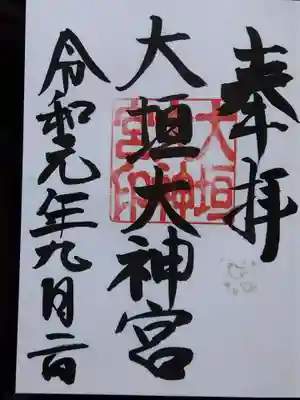 奉拝
大垣大神宮
大垣
大神
宮印
令和元年九月二日